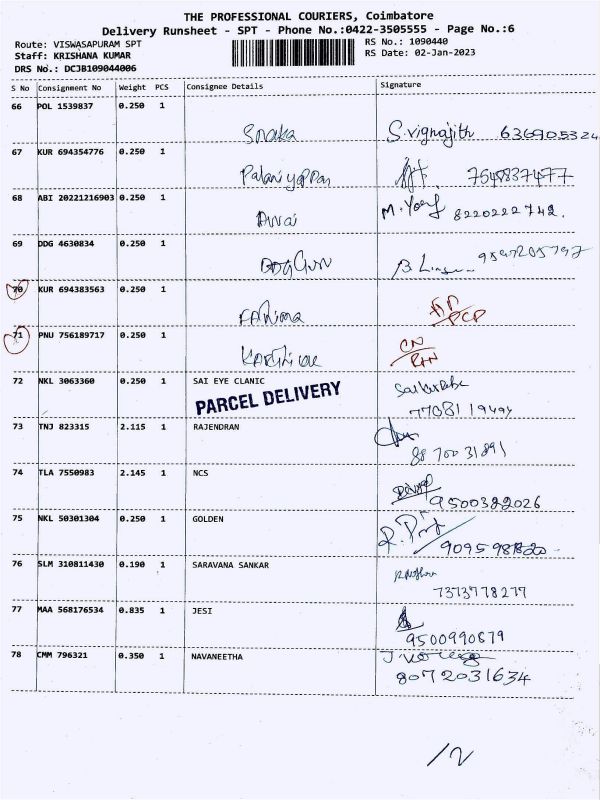 THE PROFESSIONAL COURIERS, Coimbatore
Delivery Runsheet - SPT - Phone No.:0422-3505555 - Page No.:6
Route: VISWASAPURAM SPT RS No.: 1090440
Staff: KRISHANA KUMAR RS Date: 02-Jan-2023
DRS No.: DCJB109044006
S No Consignment No Weight PCS Consignee Details Signature
66 POL 1539837 0.250 1
S. vignajith 636905324
67 KUR 694354776 0.250 1
Palaniyappan
68 ABI 20221216903 0.250 1
8220222742.
69 DDG 4630834 0.250 1
70 KUR 694383563 0.250 1
71 PNU 756189717 0.250 1
72 NKL 3063360 0.250 1 SAI EYE CLANIC
PARCEL DELIVERY
7708119494
73 TNJ 823315 2.115 1 RAJENDRAN
8870031891
74 TLA 7550983 2.145 1 NCS
9500382026
75 NKL 50301304 0.250 1 GOLDEN
76 SLM 310811430 0.190 1 SARAVANA SANKAR
7373778277
77 MAA 568176534 0.835 1 JESI
9500990679
78 CMM 796321 0.350 1 NAVANEETHA
8072031634
12